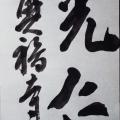 光仁
興福寺